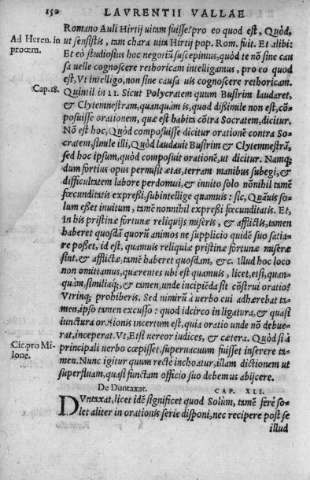 150 LAVRENTII VALLAE
Romano Auli Hirtij uirum fuisse: pro eo quod est, Quòd,
Ad Heren. in
proœm.
ut sensistis, tam chara uita Hirtij pop. Rom. fuit. Et alibi:
Et eò studiosius hoc negotiũ suscepimus, quòd te nõ sine cau
sa uelle cognoscere rethoricam intelligamus, pro eo quod
est, Vt intelligo, non sine causa uis cognoscere rethoricam.
Cap.18.
Quimil in II. Sicut Polycratem quum Busirim laudaret,
& Clytemnestram, quanquam is, quod dissimile non est, cõ-
posuisse orationem, quæ est habita cõtra Socratem, dicitur.
Nõ est hoc, Quòd composuisse dicitur orationẽ contra So-
cratem, simile illi, Quòd laudauit Busirim & Clytemnestrã,
sed hoc ipsum, quòd composuit orationẽ, ut dicitur. Namq;
dum fortius opus permisit ætas, terram manibus subegi, &
difficultatem labore perdomui, & inuito solo nonnihil tamẽ
fœcunditatis expressi, subintellige quamuis: sic, Quãuis so-
lum esset inuitum, tamẽ nonnihil expressi fœcunditatis. Et,
in his pristinæ fortunæ reliquijs miseris, & afflictis, tamen
haberet quosdã quorũ animos ne supplicio quidẽ suo satia-
re posset. id est, quamuis reliquiæ pristinæ fortunæ miseræ
sint, & afflictæ, tamẽ haberet quosdam, &c. Illud hoc loco
non omittamus, quærentes ubi est quamuis, licet, etsi, quan-
quàm, similiaq;, & tamen, unde incipiẽda sit cõstrui oratio:
Vtrinq; prohiberis. Sed nimirũ à uerbo cui adhærebat ta-
men, ipso tamen excusso: quod id circo in ligatura, & quasi
iunctura orationis incertum est, quia oratio unde nõ debue-
rat, inceperat. Vt, Etsi uereor iudices, & cætera. Quòd si à
Cic. pro Mi-
lone.
principali uerbo cœpisset, superuacuum fuisset inserere ta-
men. Nunc igitur quum rectè inchoatur, illam dictionem ut
superfluam, quasi functam officio suo debemus abijcere.
De Duntaxat. CAP. XLI.
DVntaxat, licet idẽ significet quod Solùm, tamẽ ferè so-
let aliter in orationis serie disponi, nec recipere post se
illud